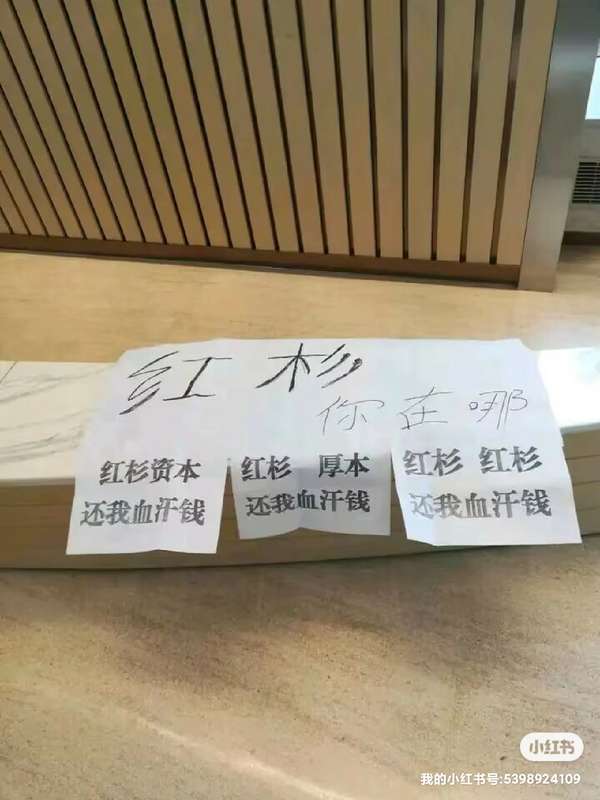 红杉
你在哪
红杉资本
还我血汗钱
红杉 厚本
还我血汗钱
红杉 红杉
还我血汗钱
小红书
我的小红书号:5398924109